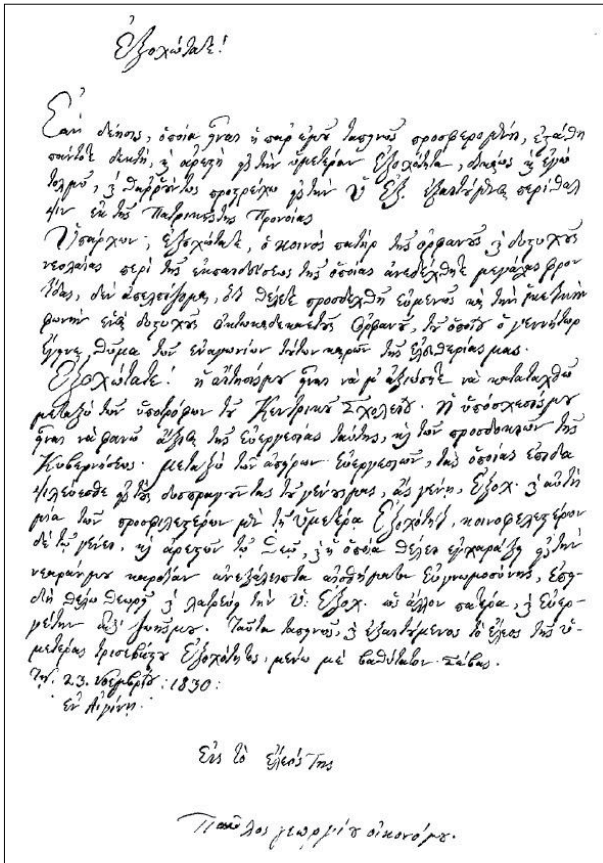 Ἐξοχώτατε!
Ἐὰν δέησις, ὁποία ἦναι ἡ παρ' ἐμοῦ ταπεινῶς προσφερομένη, ἐστάθη
πάντοτε δεκτὴ, ἢ ἀρεστὴ εἰς τὴν ὑμετέραν Ἐξοχότητα, οὕτως κ ἐγὼ
τολμῶ, κ θαῤῥούντως προστρέχω εἰς τὴν Ὑ. Ἐξ. ἐξαιτούμενος περίθαλ
ψιν ἐκ τῆς Πατρικῆς της Προνοίας
Ὑπάρχων, Ἐξοχώτατε, ὁ κοινὸς πατὴρ τῆς ὀρφανῆς κ δυστυχοῦς
νεολαίας περὶ τῆς ἐκπαιδεύσεως τῆς ὁποίας ἀνεδέχθητε μεγάλας φρον
τίδας, δὲν ἀπελπίζομαι, ὅτι θέλετε προσδεχθῆ εὐμενῶς καὶ τὴν
φωνὴν ἑνὸς δυστυχοῦς ὀκτωκαιδεκαετοῦς Ὀρφανοῦ, τοῦ ὁποίου ὁ γεννήτωρ
ἔγινε θῦμα τῶν ἐναγωνίων τούτων καιρῶν τῆς ἐλευθερίας μας.
Ἐξοχώτατε! ἡ αἴτησίς μου ἦναι νὰ μ' ἀξιώσητε νὰ καταταχθῶ
μεταξὺ τῶν ὑποτρόφων τοῦ Κεντρικοῦ Σχολείου. Ἡ ὑπόσχεσίς μου
ἦναι νὰ φανῶ ἄξιος τῆς εὐεργεσίας ταύτης, καὶ τῶν προσδοκιῶν τῆς
Κυβερνήσεως. μεταξὺ τῶν ἀπείρων εὐεργεσιῶν, τὰς ὁποίας ἐπιδα
ψιλεύεσθε εἰς τοὺς δυσπραγοῦντας τοῦ γένους μας, ἂς γένῃ, Ἐξοχ. κ αὐτὴ
μία τῶν προσφιλεστέρων μὲν τῇ ὑμετέρᾳ Ἐξοχότητι, κοινωφελεστέρων
δὲ τῷ γένει, καὶ ἀρεστῶν τῷ Θεῷ, κ ἡ ὁποία θέλει ἐγχαράξῃ εἰς τὴν
νεαράν μου καρδίαν ἀνεξάλειπτα αἰσθήματα Εὐγνωμοσύνης, ἐπει
δὴ θέλω θεωρεῖ κ λατρεύει τὴν Ὑ: Ἐξοχ. ὡς ἄλλον πατέρα, κ Εὐερ
γέτην τῆς ζωῆς μου. Ταῦτα ταπεινῶς, κ ἐξαιτούμενος τὸ ἔλεος τῆς ὑ
μετέρας τρισεβάστου Ἐξοχότητος, μένω μὲ βαθύτατον σέβας.
Τῇ 23. νοεμβρίου: 1830:
ἐν Αἰγίνῃ.
Εἰς τὸ ἔλεός της
Παῦλος γεωργίου οἰκονόμου.